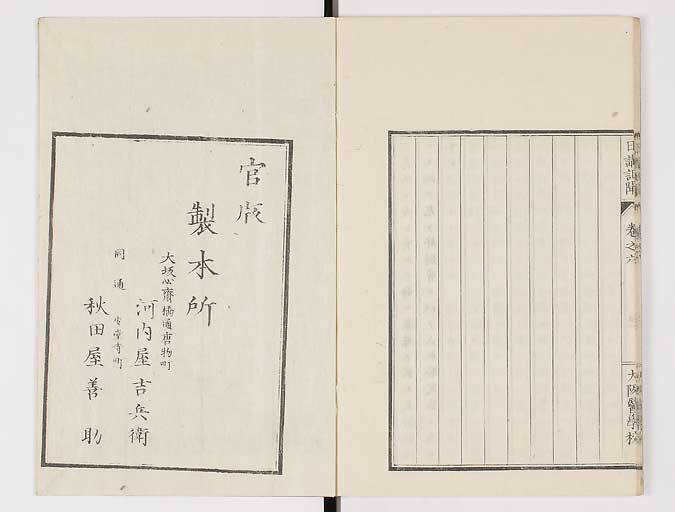 日講記聞
卷之六
大阪醫學校
官版
製本所
大坂心齋橋通唐物町
河内屋吉兵衛
同通安堂寺町
秋田屋善助